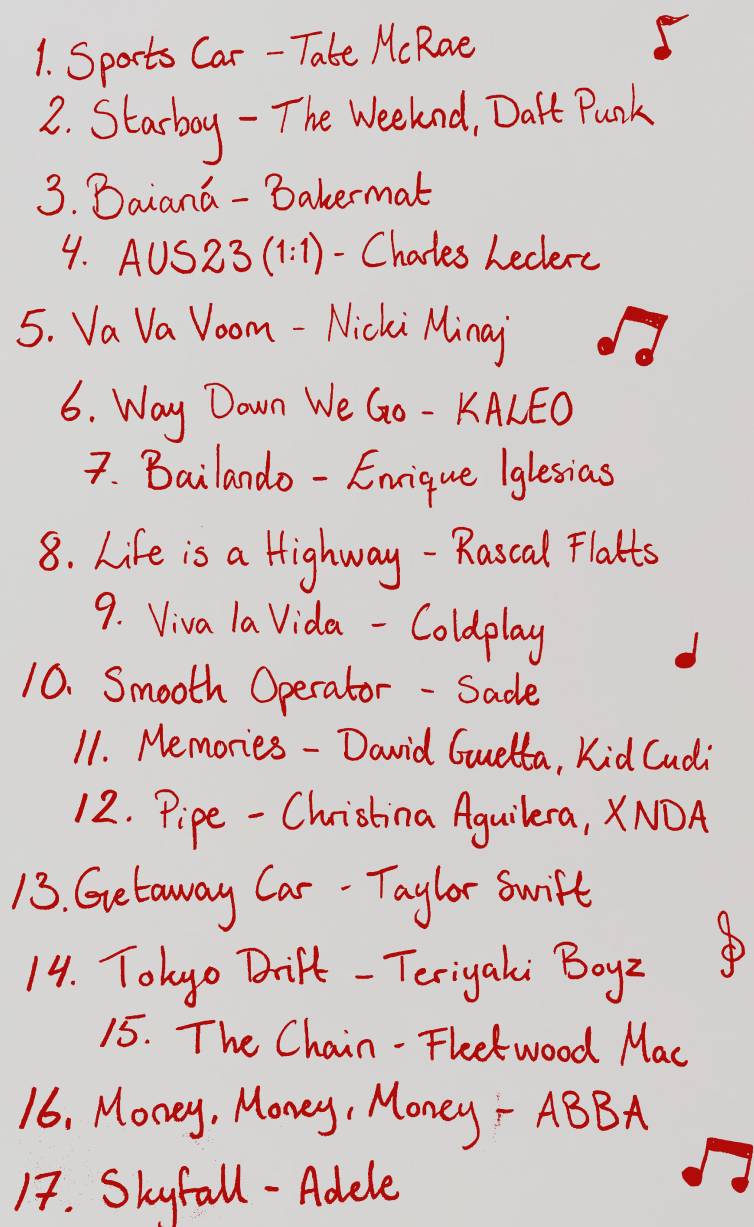 1. Sports Car - Tate McRae
2. Starboy - The Weeknd, Daft Punk
3. Baianá - Bakermat
4. AUS23 (1:1) - Charles Leclerc
5. Va Va Voom - Nicki Minaj
6. Way Down We Go - KALEO
7. Bailando - Enrique Iglesias
8. Life is a Highway - Rascal Flatts
9. Viva la Vida - Coldplay
10. Smooth Operator - Sade
11. Memories - David Guetta, Kid Cudi
12. Pipe - Christina Aguilera, XNDA
13. Getaway Car - Taylor Swift
14. Tokyo Drift - Teriyaki Boyz
15. The Chain - Fleetwood Mac
16. Money, Money, Money - ABBA
17. Skyfall - Adele